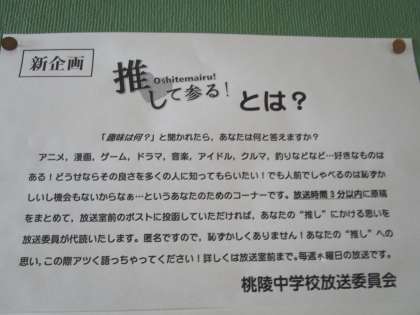 新企画
推して参る!
Oshitemairu!
とは?
「趣味は何?」と聞かれたら、あなたは何と答えますか?
アニメ，漫画，ゲーム，ドラマ，音楽，アイドル，クルマ，釣りなどなど…好きなものは
ある！どうせならその良さを多くの人に知ってもらいたい！でも人前でしゃべるのは恥ずか
しいし機会もないからなぁ…というあなたのためのコーナーです。放送時間3分以内に原稿
をまとめて，放送室前のポストに投函していただければ，あなたの“推し”にかける思いを
放送委員が代読いたします。匿名ですので，恥ずかしくありません！あなたの“推し”への
思い，この際アツく語っちゃってください！詳しくは放送室前まで。毎週水曜日の放送です。
桃陵中学校放送委員会